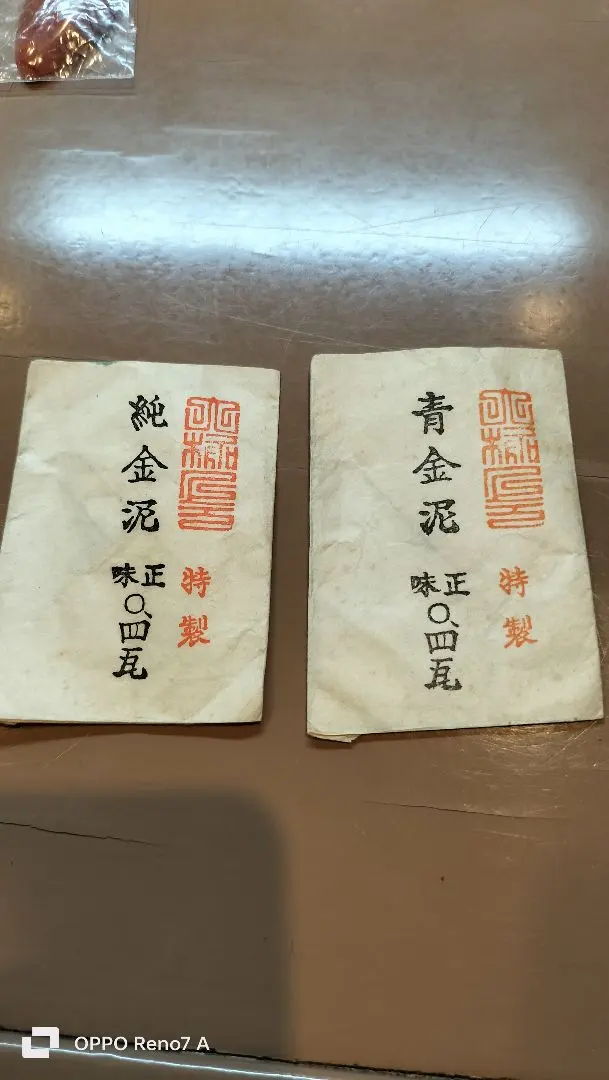 特製
純金泥
正味
〇、四瓦
特製
青金泥
正味
〇、四瓦
OPPO Reno7 A